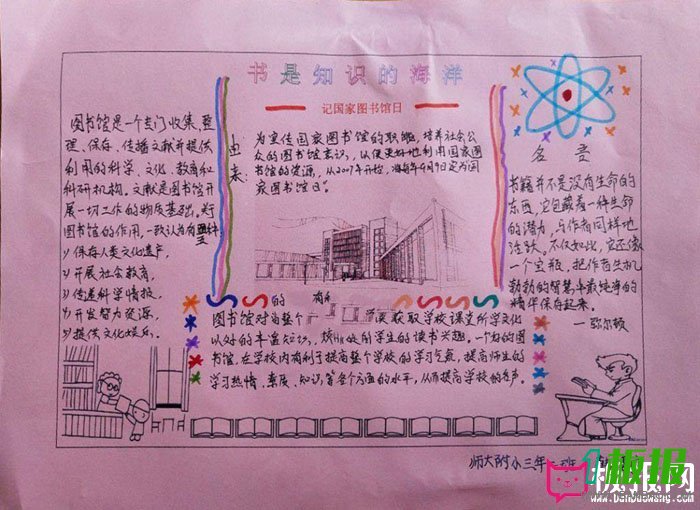 书是知识的海洋
记国家图书馆日
图书馆是一个专门收集、整
理、保存、传播文献并提供
利用的科学、文化、教育和
科研机构。文献是图书馆开
展一切工作的物质基础。对
图书馆的作用,一致认为有五种
1、保存人类文化遗产,
2、开展社会教育,
3、传递科学情报,
4、开发智力资源,
5、提供文化娱乐。
由来:
为宣传国家图书馆的职能,培养社会公
众的图书馆意识,以便更好地利用国家图
书馆的资源,从2007年开始,将每年9月9日定为国
家图书馆日”。
的
图书馆对尚整个 获取学校课堂所学文化
以外的丰富知识, 学生的读书兴趣。一个好的图
书馆,在学校内有利于提高整个学校的学习气氛,提高师生的
学习热情、素质、知识,等各个方面的水平,从而提高学校的名声。
名言
书籍并不是没有生命的
东西,它包藏着一种生命
的潜力,与作者同样地
活跃。不仅如此,它还像
一个宝瓶,把作者生机
勃勃的智慧中最纯净的
精华保存起来。
—弥尔顿
师大附小三年二班
1板报
板报网
www.banbaowang.com